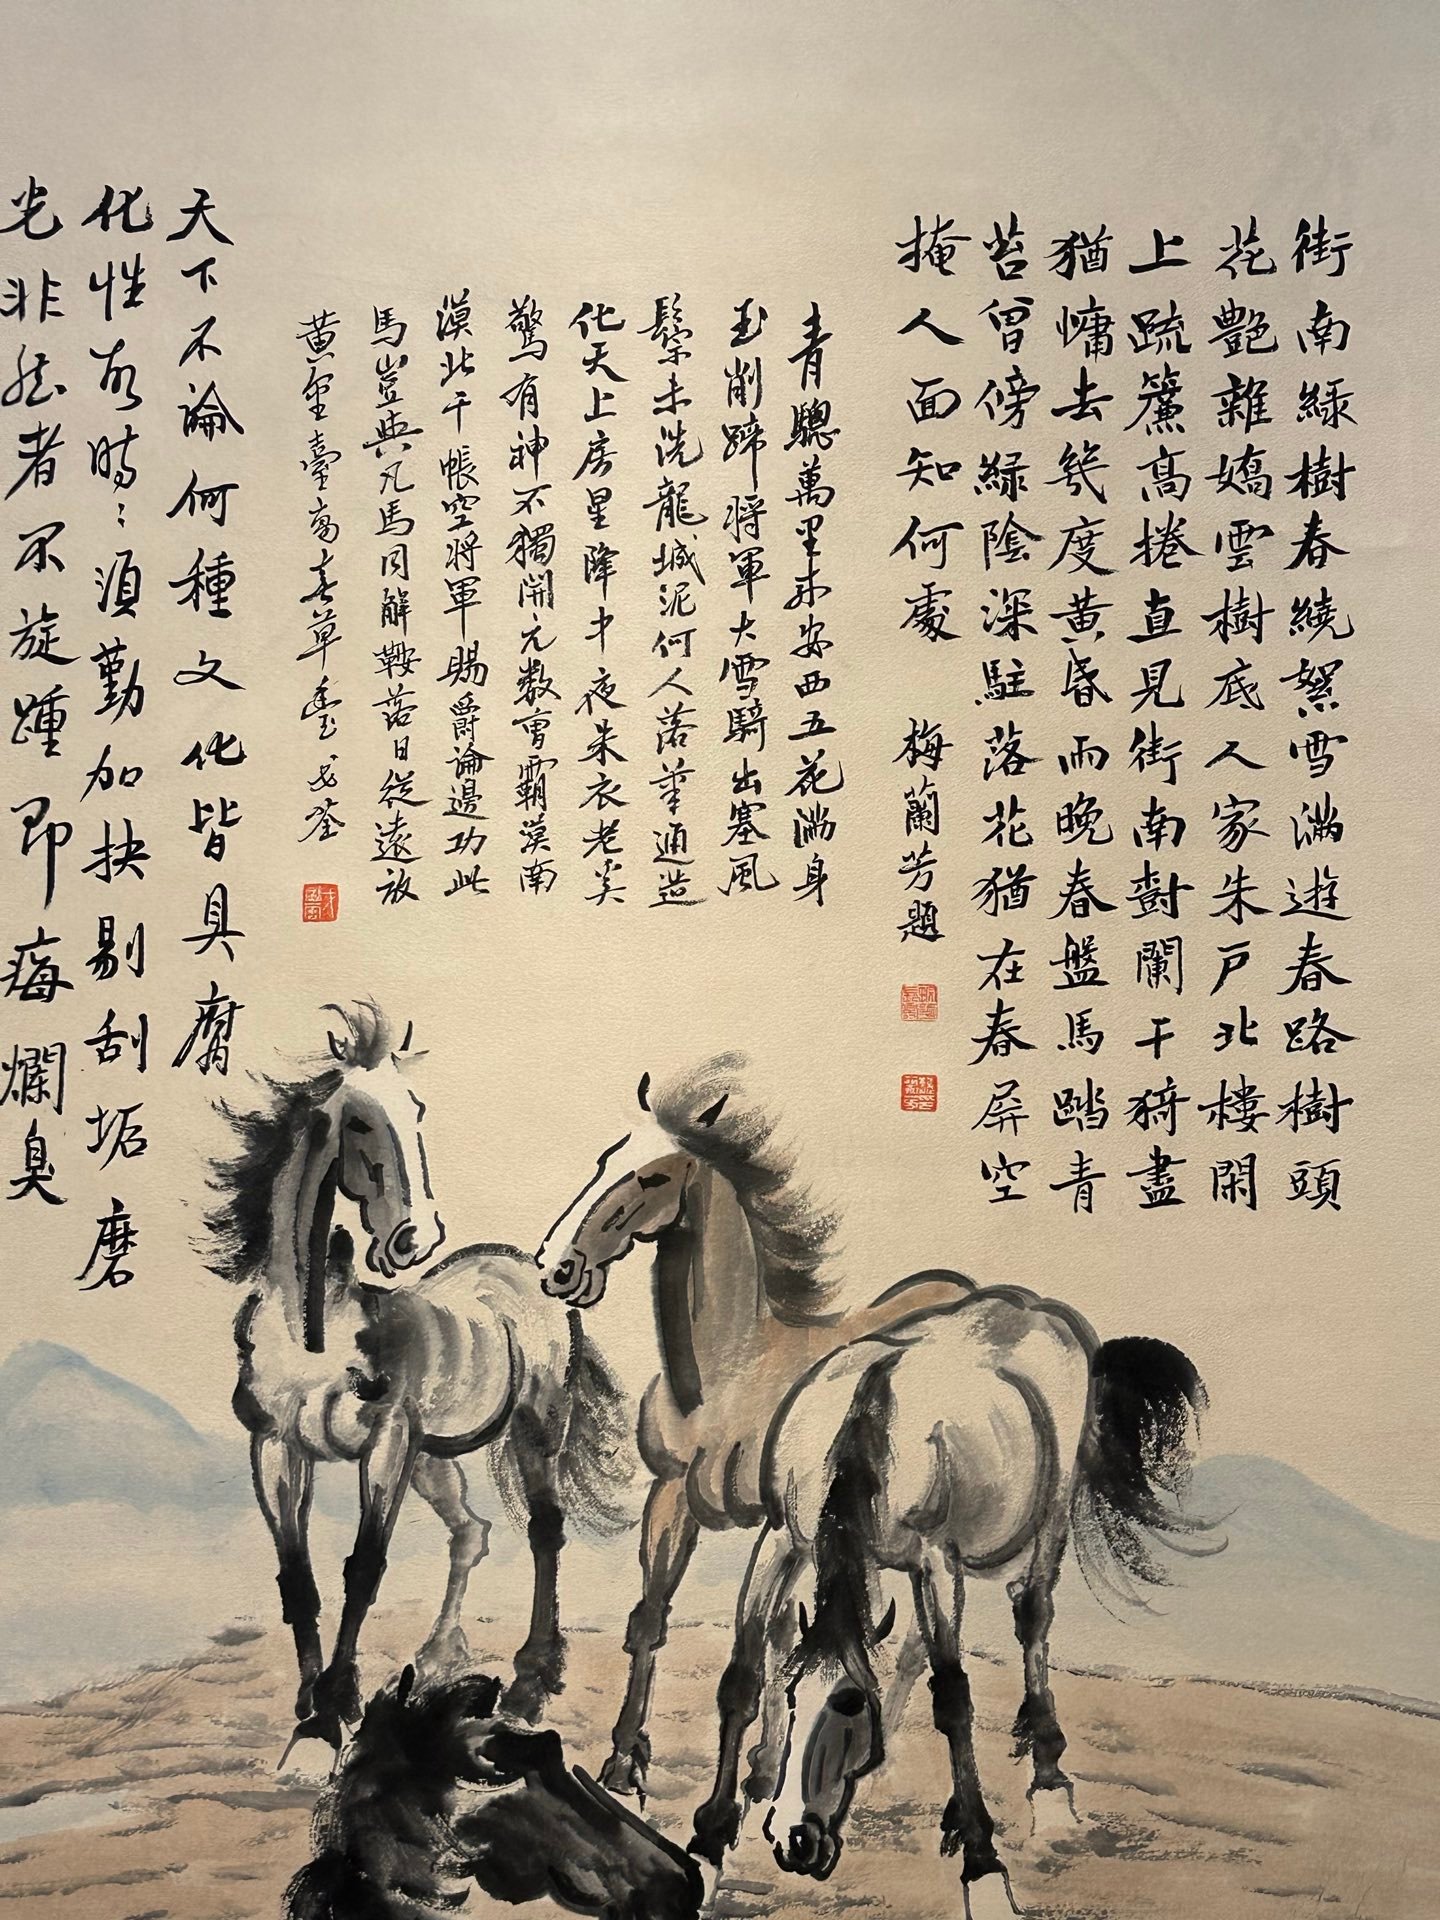 街南綠樹春繞絮雪滿遊春路樹頭
花艷雜嬌雲樹底人家朱戶北樓閑
上疏簾高捲直見街南對闌干猗盡
猶慵去幾度黃昏雨晚春盤馬踏青
苔曾傍綠陰深駐落花猶在春屏空
掩人面知何處 梅蘭芳題
青驄萬里來安西五花滿身
玉削蹄將軍大雪騎出塞風
鬃未洗龍城泥何人落筆通造
化天上房星降中夜朱衣老奚
驚有神不獨開元數曹霸漠南
漠北千帳空將軍賜爵論邊功此
馬豈與凡馬同解鞍落日從遠放
黃金臺高春草
天下不論何種文化皆具腐
化性故時時須勤加抉剔刮垢磨
光非然者不旋踵即痗爛臭